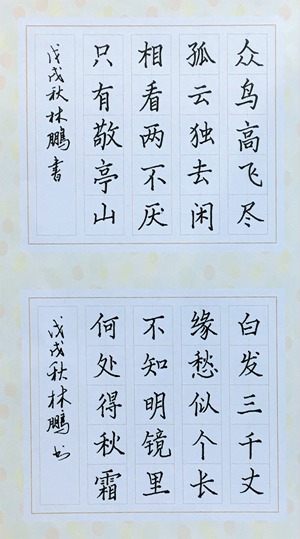 众鸟高飞尽
孤云独去闲
相看两不厌
只有敬亭山
戊戌秋林鹏书
白发三千丈
缘愁似个长
不知明镜里
何处得秋霜
戊戌秋林鹏书